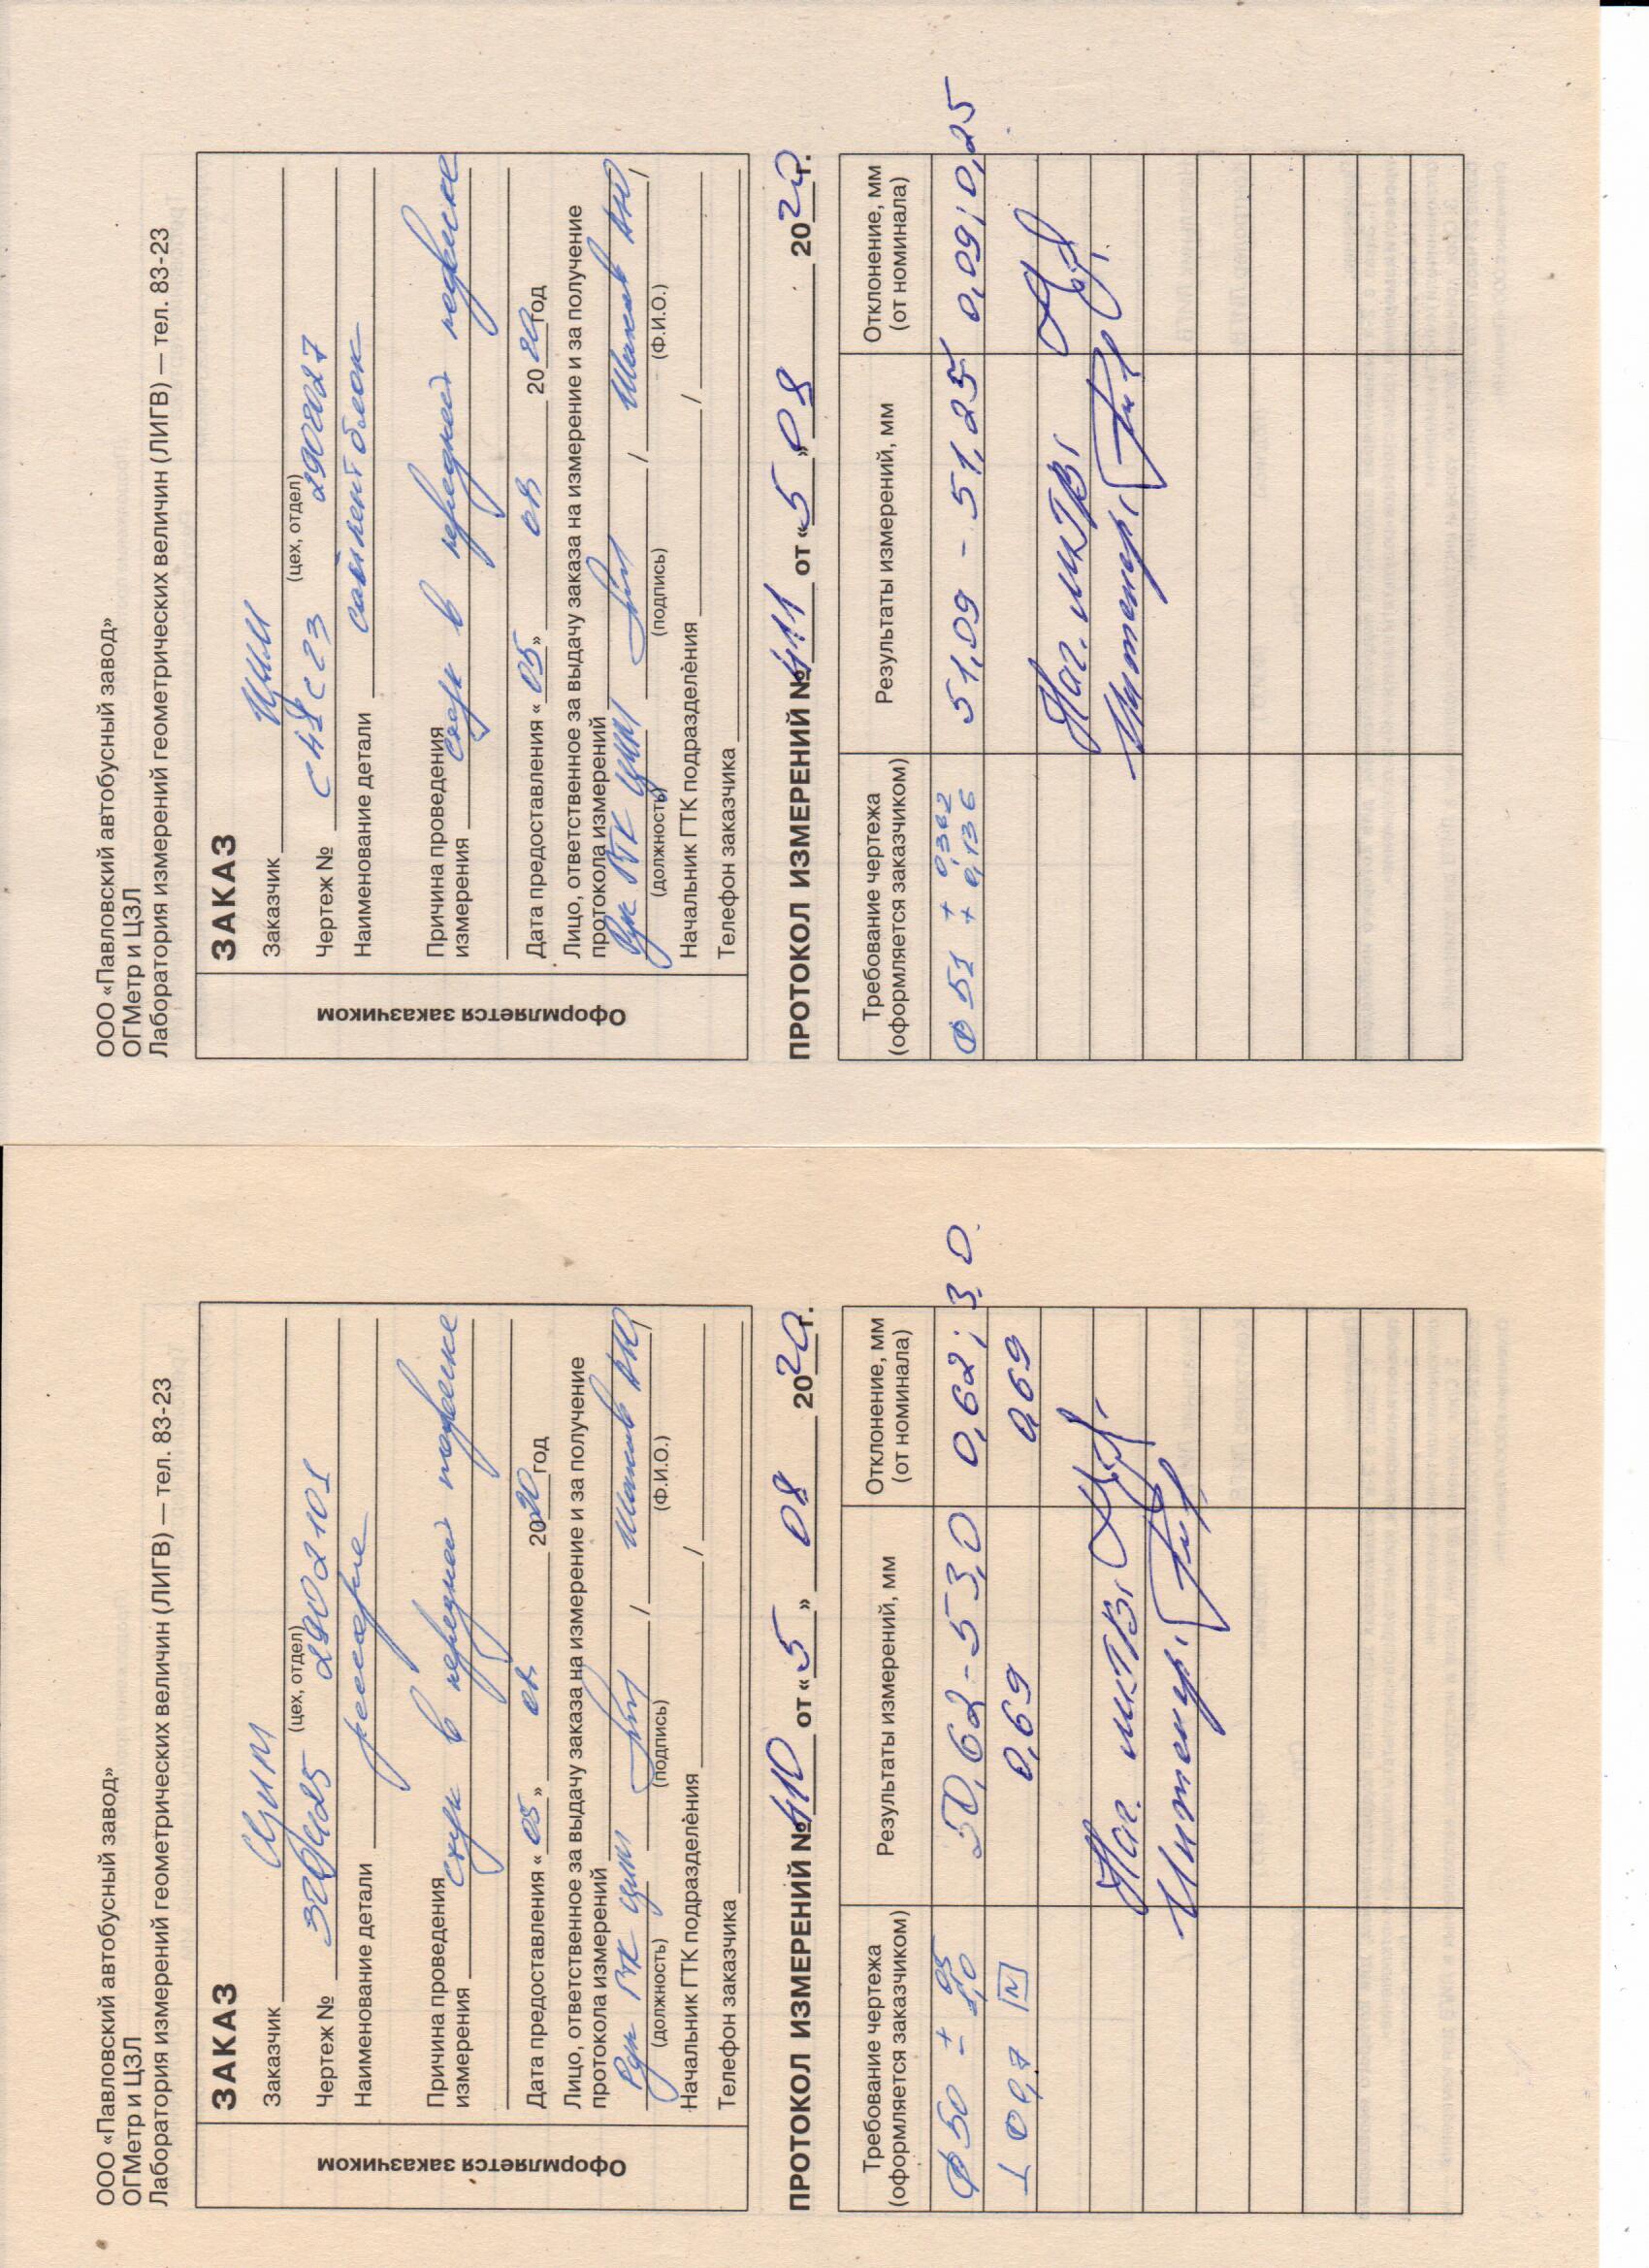 ООО «Павловский автобусный завод»
ОГМетр и ЦЗЛ
Лаборатория измерений геометрических величин (ЛИГВ) — тел. 83-23
ЗАКАЗ
Оформляется заказчиком
Заказчик
(цех, отдел)
Чертеж № 2902101
Наименование детали рессоре
Причина проведения
измерения Стук в передней подвеске
Дата предоставления «05» 08 2020 год
Лицо, ответственное за выдачу заказа на измерение и за получение
протокола измерений
(должность) (подпись) / (Ф.И.О.) /
Начальник ГТК подразделения /
Телефон заказчика
ПРОТОКОЛ ИЗМЕРЕНИЙ №410 от «5» 08 2020г.
Требование чертежа
(оформляется заказчиком)
Результаты измерений, мм
Отклонение, мм
(от номинала)
50,62 - 53,0 0,62; 3,0.
⊥ 0,7 0,69 0,69
Нач.
Инженер
ООО «Павловский автобусный завод»
ОГМетр и ЦЗЛ
Лаборатория измерений геометрических величин (ЛИГВ) — тел. 83-23
ЗАКАЗ
Оформляется заказчиком
Заказчик
(цех, отдел)
Чертеж № С41С23 2902027
Наименование детали сайлентблок
Причина проведения
измерения Стук в передней подвеске
Дата предоставления «05» 08 2020 год
Лицо, ответственное за выдачу заказа на измерение и за получение
протокола измерений
(должность) (подпись) / (Ф.И.О.) /
Начальник ГТК подразделения /
Телефон заказчика
ПРОТОКОЛ ИЗМЕРЕНИЙ №411 от «5» 08 2020г.
Требование чертежа
(оформляется заказчиком)
Результаты измерений, мм
Отклонение, мм
(от номинала)
Ф 51 +0,362 +0,136 51,09 - 51,25 0,09; 0,25
Нач.
Инженер